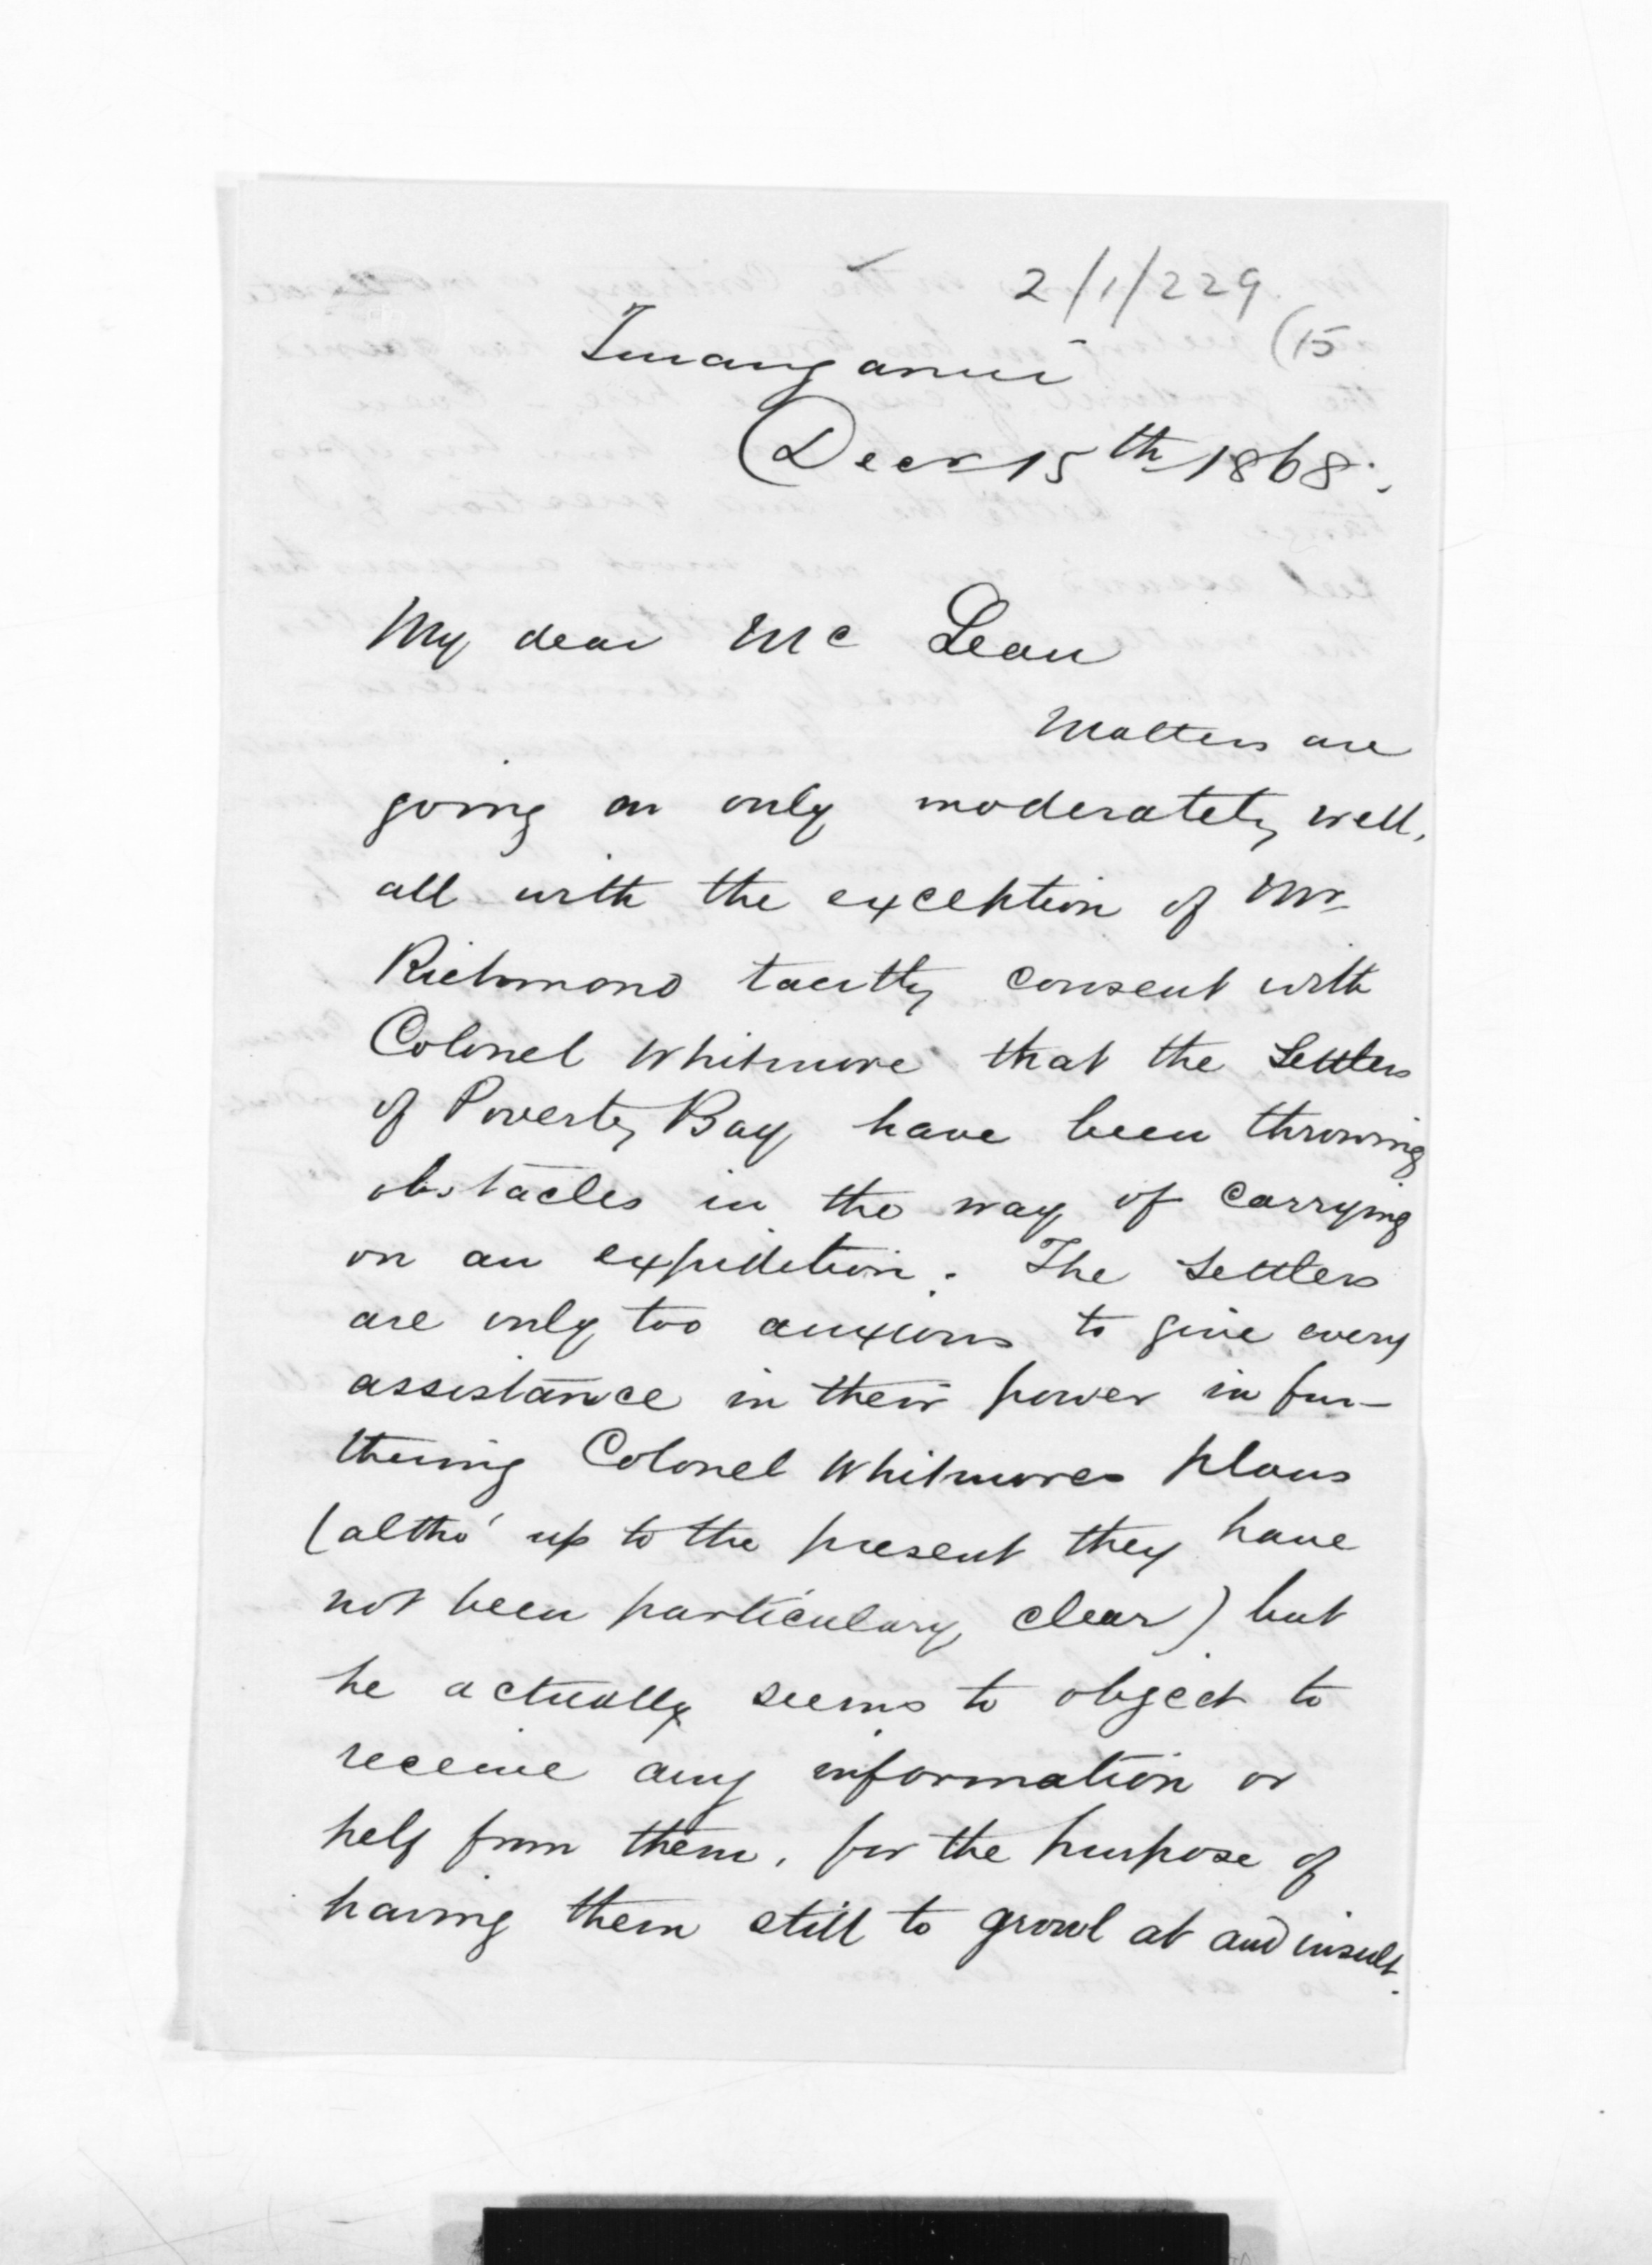 2/1/229
(15
Turanganui
Decr 15th 1868.
My dear Mc Lean
Matters are
going on only moderately well,
all with the exception of Mr
Richmond tacitly consent with
Colonel Whitmore that the Settlers
of Poverty Bay have been throwing
obstacles in the way of carrying
on an expedition. The Settlers
are only too anxious to give every
assistance in their power in fur-
thering Colonel Whitmores plans
(altho' up to the present they have
not been particulary clear) but
he actually seems to object to
receive any information or
help from them, for the purpose of
having them still to growl at and insult.